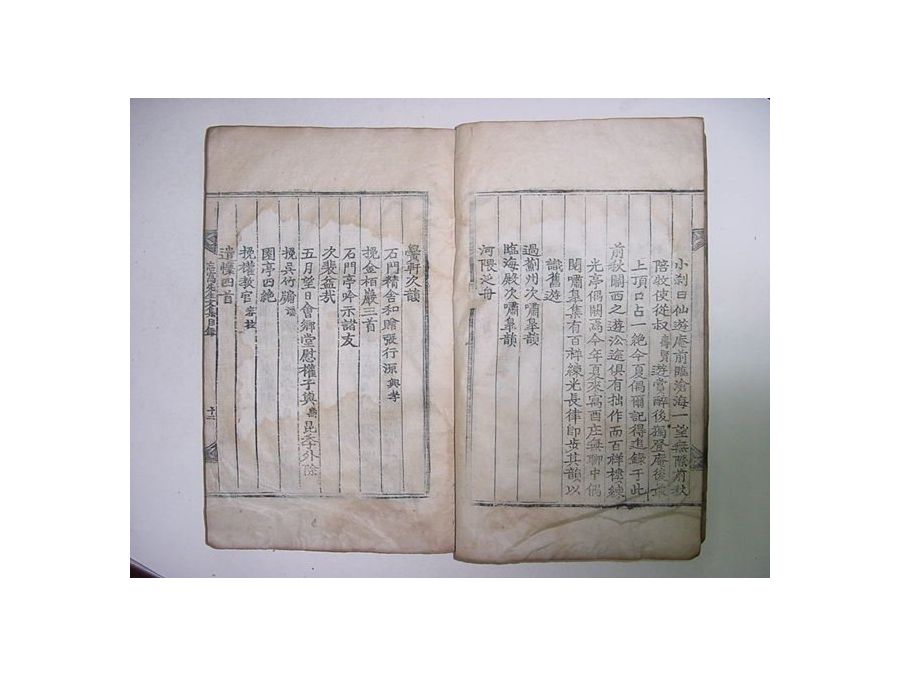 小刹曰仙遊庵前臨滄海一望無際府伯
陪敎使從叔壽賢遊嘗醉後獨登庵後最
上頂口占一絶今夏偶爾記得追錄于此
前秋關西之遊沿途俱有拙作而百祥樓練
光亭偶闕焉今年夏來寓酉庄無聊中偶
閱嘯皐集有百祥練光長律卽步其韻以
識舊遊
過薊州次嘯皐韻
臨海殿次嘯皐韻
河隈泛舟
軒次韻
石門精舍和贈張行源興孝
挽金栢巖三首
石門亭吟示諸友
次裴盆哉
五月望日會鄕堂慰權子輿昆季外除
挽吳竹牖
園亭四絶
挽權敎官
遣懷四首
先生文集目錄
十二